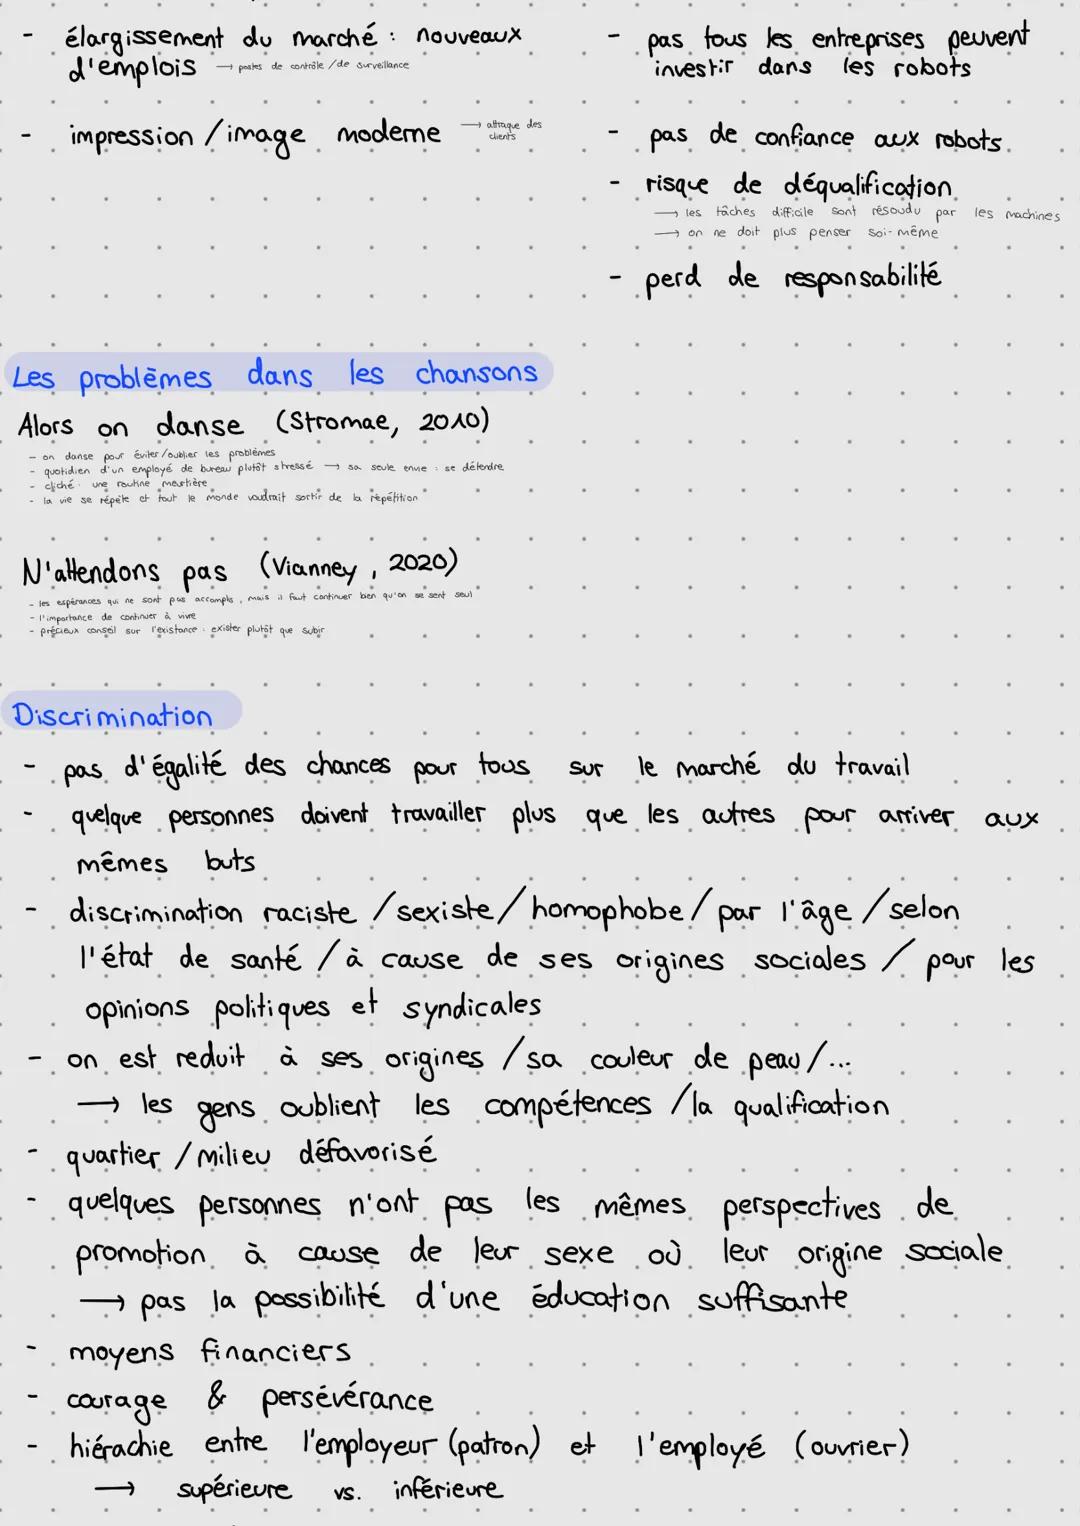 - élargissement du marché : nouveaux
d'emplois → postes de contrôle / de surveillance
- impression / image moderne → attraque des
clients
- pas tous les entreprises peuvent
investir dans les robots
- pas de confiance aux robots
- risque de déqualification
→ les tâches difficile sont résoudu par les machines
→ on ne doit plus penser soi-même
- perd de responsabilité
Les problèmes dans les chansons
Alors on danse (Stromae, 2010)
- on danse pour éviter/oublier les problèmes
- quotidien d'un employé de bureau plutôt stressé → sa seule envie : se détendre
- cliché : une routine meurtière
- la vie se répète et tout le monde voudrait sortir de la répétition
N'attendons pas (Vianney, 2020)
- les espérances qui ne sont pas accomplis, mais il faut continuer bien qu'on se sent seul
- l'importance de continuer à vivre
- précieux conseil sur l'existance : exister plutôt que subir
Discrimination
- pas d'égalité des chances pour tous sur le marché du travail
- quelque personnes doivent travailler plus que les autres pour arriver aux
mêmes buts
- discrimination raciste / sexiste / homophobe / par l'âge / selon
l'état de santé / à cause de ses origines sociales / pour les
opinions politiques et syndicales
- on est reduit à ses origines / sa couleur de peau / ...
→ les gens oublient les compétences / la qualification
- quartier / milieu défavorisé
- quelques personnes n'ont pas les mêmes perspectives de
promotion à cause de leur sexe où leur origine sociale
→ pas la possibilité d'une éducation suffisante
- moyens financiers
- courage & persévérance
- hiérachie entre l'employeur (patron) et l'employé (ouvrier)
→ supérieure vs. inférieure